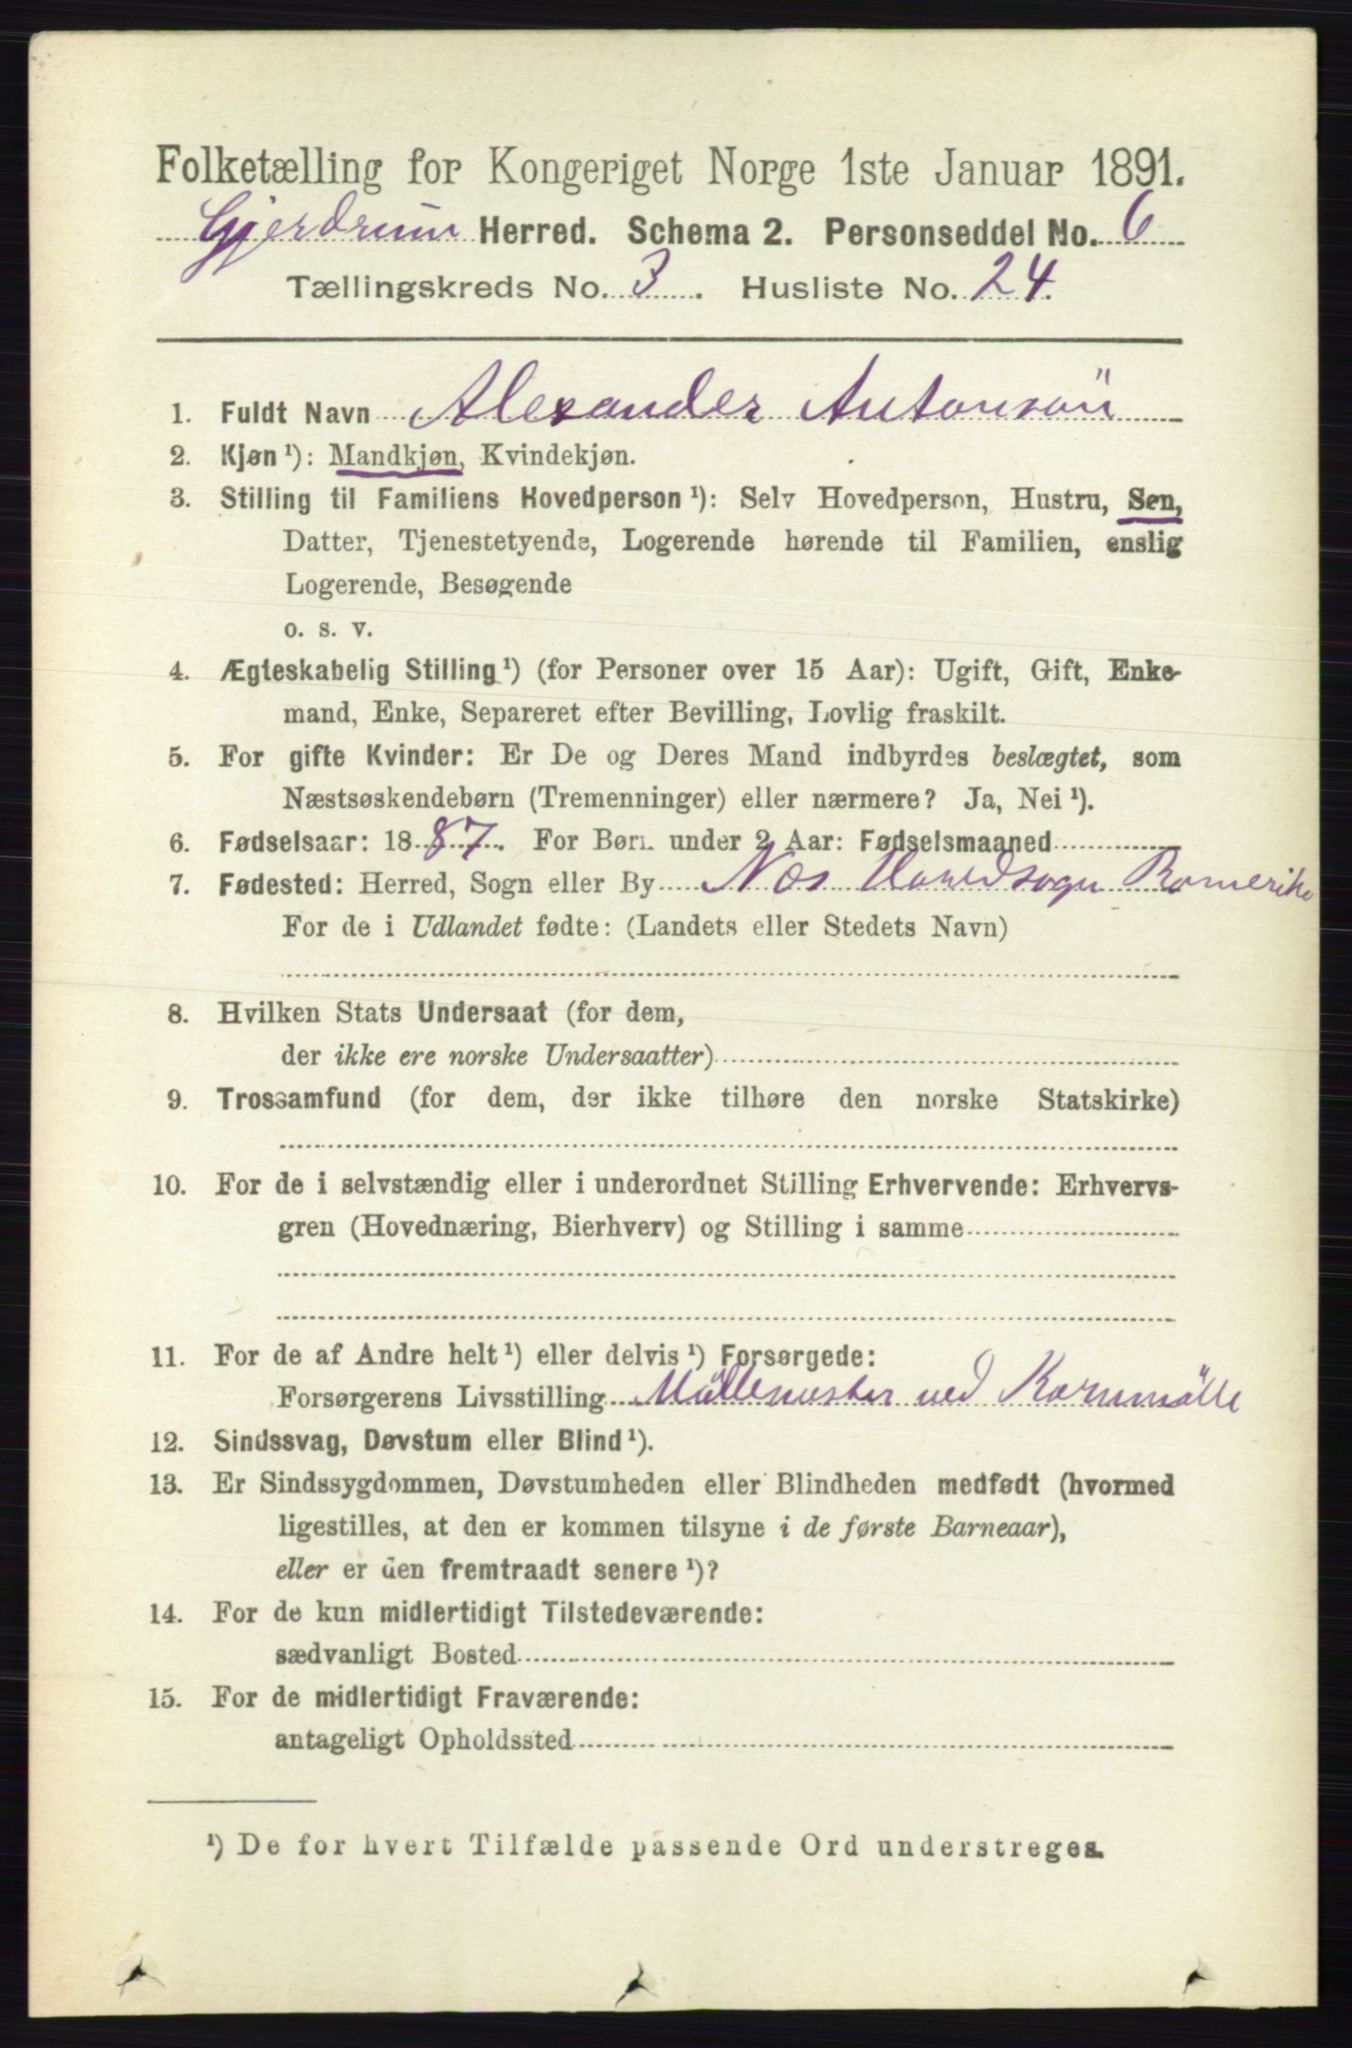 Folketælling for Kongeriget Norge 1ste Januar 1891.
Gjerdrum Herred. Schema 2. Personseddel No. 6
Tællingskreds No. 3. Husliste No. 24.
1. Fuldt Navn Alexander Antonsön
2. Kjøn ¹): Mandkjøn, Kvindekjøn.
3. Stilling til Familiens Hovedperson ¹): Selv Hovedperson, Hustru, Søn,
Datter, Tjenestetyende, Logerende hørende til Familien, enslig
Logerende, Besøgende
o. s. v.
4. Ægteskabelig Stilling ¹) (for Personer over 15 Aar): Ugift, Gift, Enke-
mand, Enke, Separeret efter Bevilling, Lovlig fraskilt.
5. For gifte Kvinder: Er De og Deres Mand indbyrdes beslægtet, som
Næstsøskendebørn (Tremenninger) eller nærmere? Ja, Nei ¹).
6. Fødselsaar: 1887. For Børn under 2 Aar: Fødselsmaaned
7. Fødested: Herred, Sogn eller By Næs Hovedsogn Romerike
For de i Udlandet fødte: (Landets eller Stedets Navn)
8. Hvilken Stats Undersaat (for dem,
der ikke ere norske Undersaatter)
9. Trossamfund (for dem, der ikke tilhøre den norske Statskirke)
10. For de i selvstændig eller i underordnet Stilling Erhvervende: Erhvervs-
gren (Hovednæring, Bierhverv) og Stilling i samme
11. For de af Andre helt ¹) eller delvis ¹) Forsørgede:
Forsørgerens Livsstilling Möllemester ved Kornmölle
12. Sindssvag, Døvstum eller Blind ¹).
13. Er Sindssygdommen, Døvstumheden eller Blindheden medfødt (hvormed
ligestilles, at den er kommen tilsyne i de første Barneaar),
eller er den fremtraadt senere ¹)?
14. For de kun midlertidigt Tilstedeværende:
sædvanligt Bosted
15. For de midlertidigt Fraværende:
antageligt Opholdssted
¹) De for hvert Tilfælde passende Ord understreges.